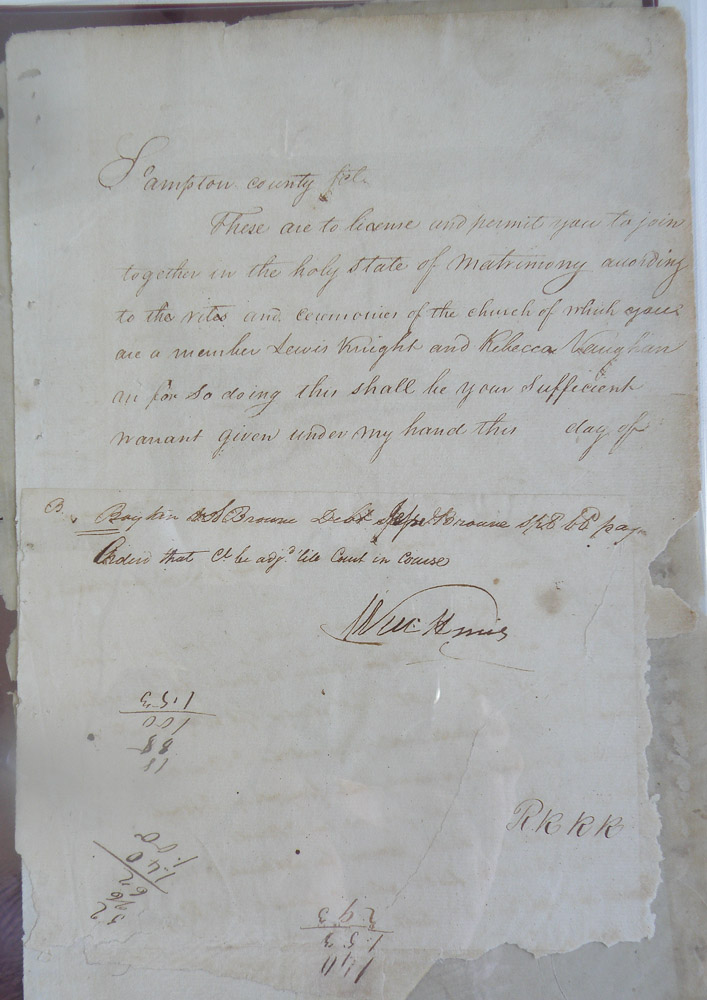 Sampton county
These are to license and permit you to join
together in the holy state of Matrimony according
to the rites and ceremonies of the church of which you
are a member Lewis Knight and Rebecca Vaughan
for so doing this shall be your sufficient
warrant given under my hand this day of
B.
Boykin Browne Debt Browne
that be adjd till Court in Course
R K K K
18
88
100
1.53
52
26
62
1.40
1.90
140
1.53
293